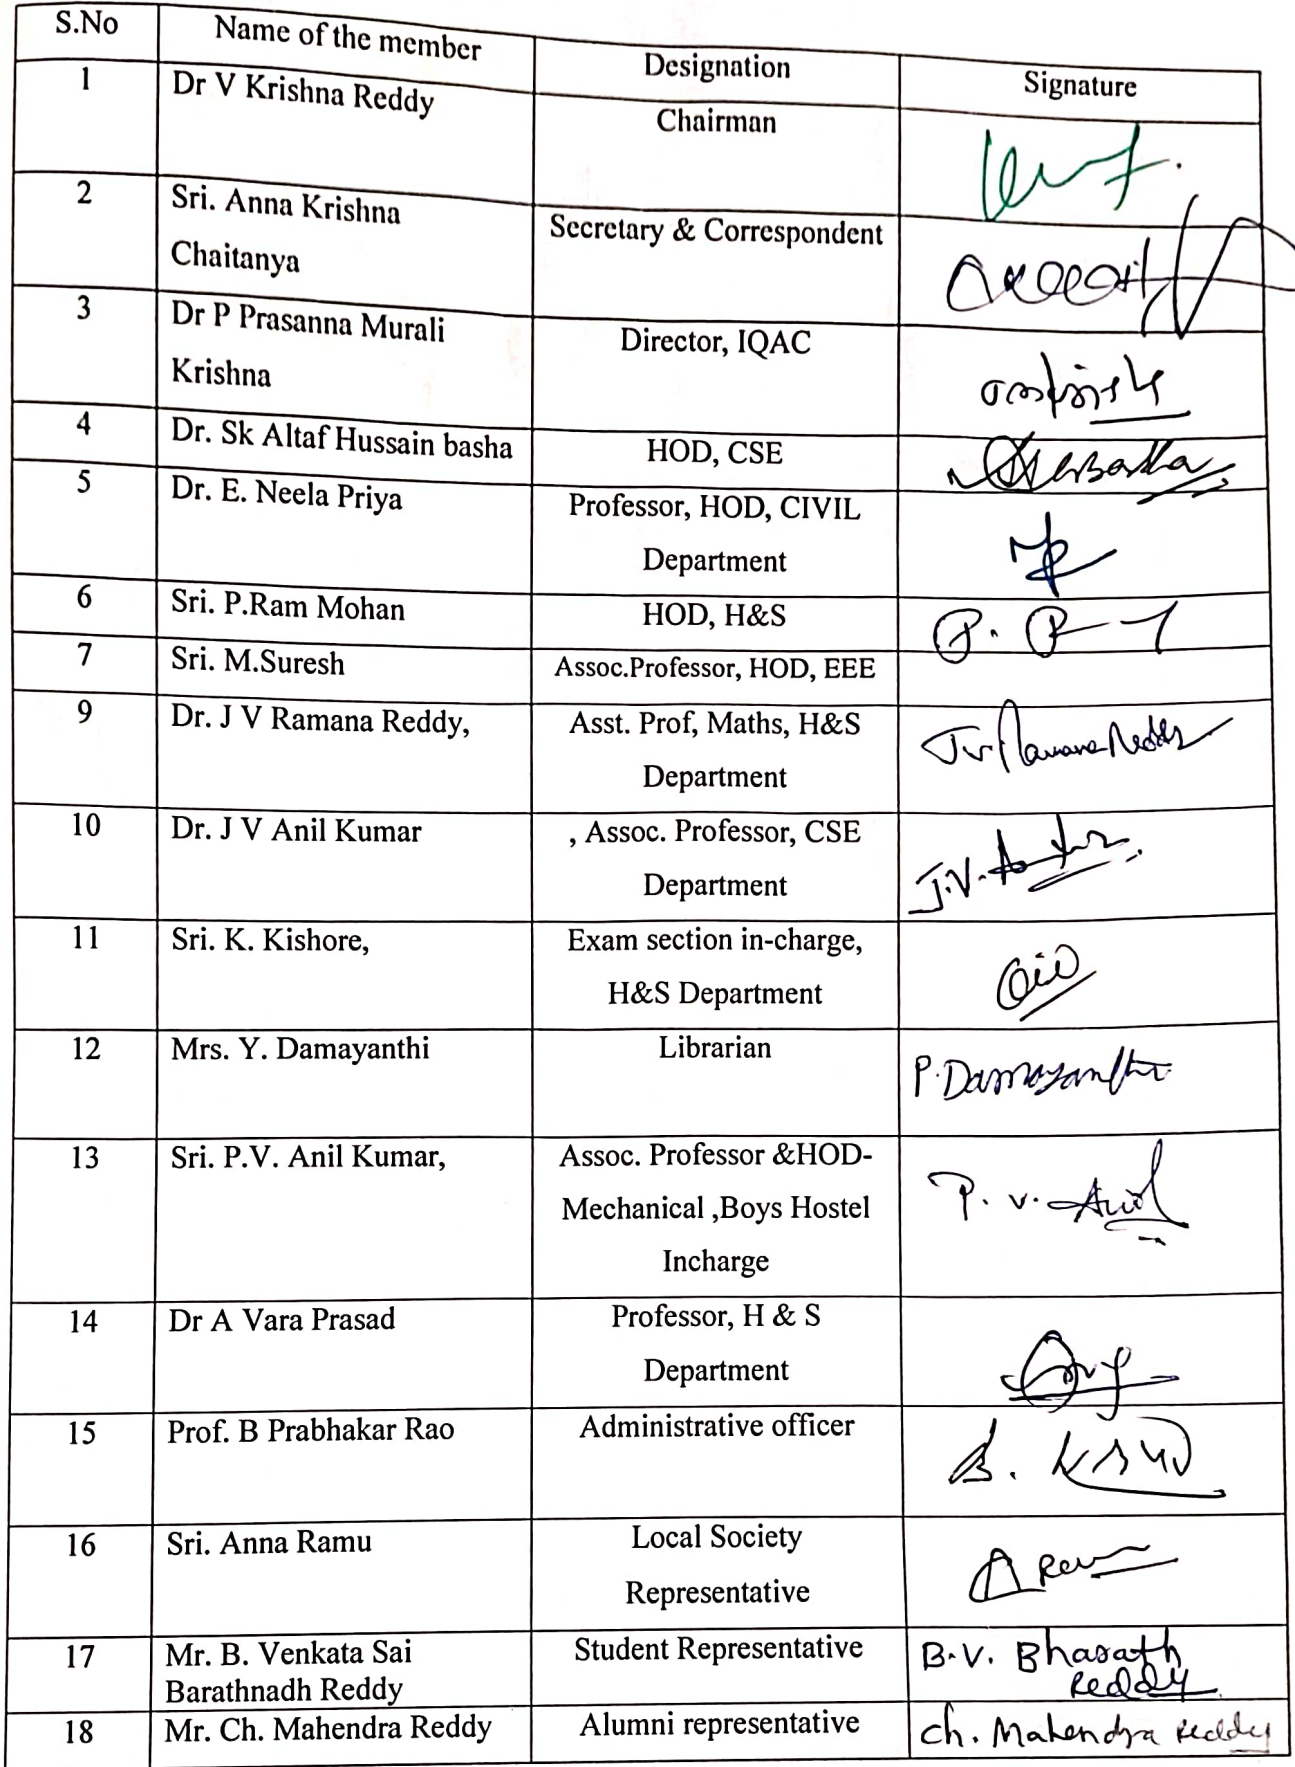 S.No Name of the member Designation Signature
1 Dr V Krishna Reddy Chairman
2 Sri. Anna Krishna Secretary & Correspondent
Chaitanya
3 Dr P Prasanna Murali Director, IQAC
Krishna
4 Dr. Sk Altaf Hussain basha HOD, CSE
5 Dr. E. Neela Priya Professor, HOD, CIVIL
Department
6 Sri. P.Ram Mohan HOD, H&S
7 Sri. M.Suresh Assoc.Professor, HOD, EEE
9 Dr. J V Ramana Reddy, Asst. Prof, Maths, H&S
Department
10 Dr. J V Anil Kumar , Assoc. Professor, CSE
Department
11 Sri. K. Kishore, Exam section in-charge,
H&S Department
12 Mrs. Y. Damayanthi Librarian P.Damayanthi
13 Sri. P.V. Anil Kumar, Assoc. Professor &HOD- P. V. Anil
Mechanical ,Boys Hostel
Incharge
14 Dr A Vara Prasad Professor, H & S
Department
15 Prof. B Prabhakar Rao Administrative officer
16 Sri. Anna Ramu Local Society
Representative
17 Mr. B. Venkata Sai Student Representative B.V. Bharath
Barathnadh Reddy Reddy
18 Mr. Ch. Mahendra Reddy Alumni representative Ch. Mahendra Reddy